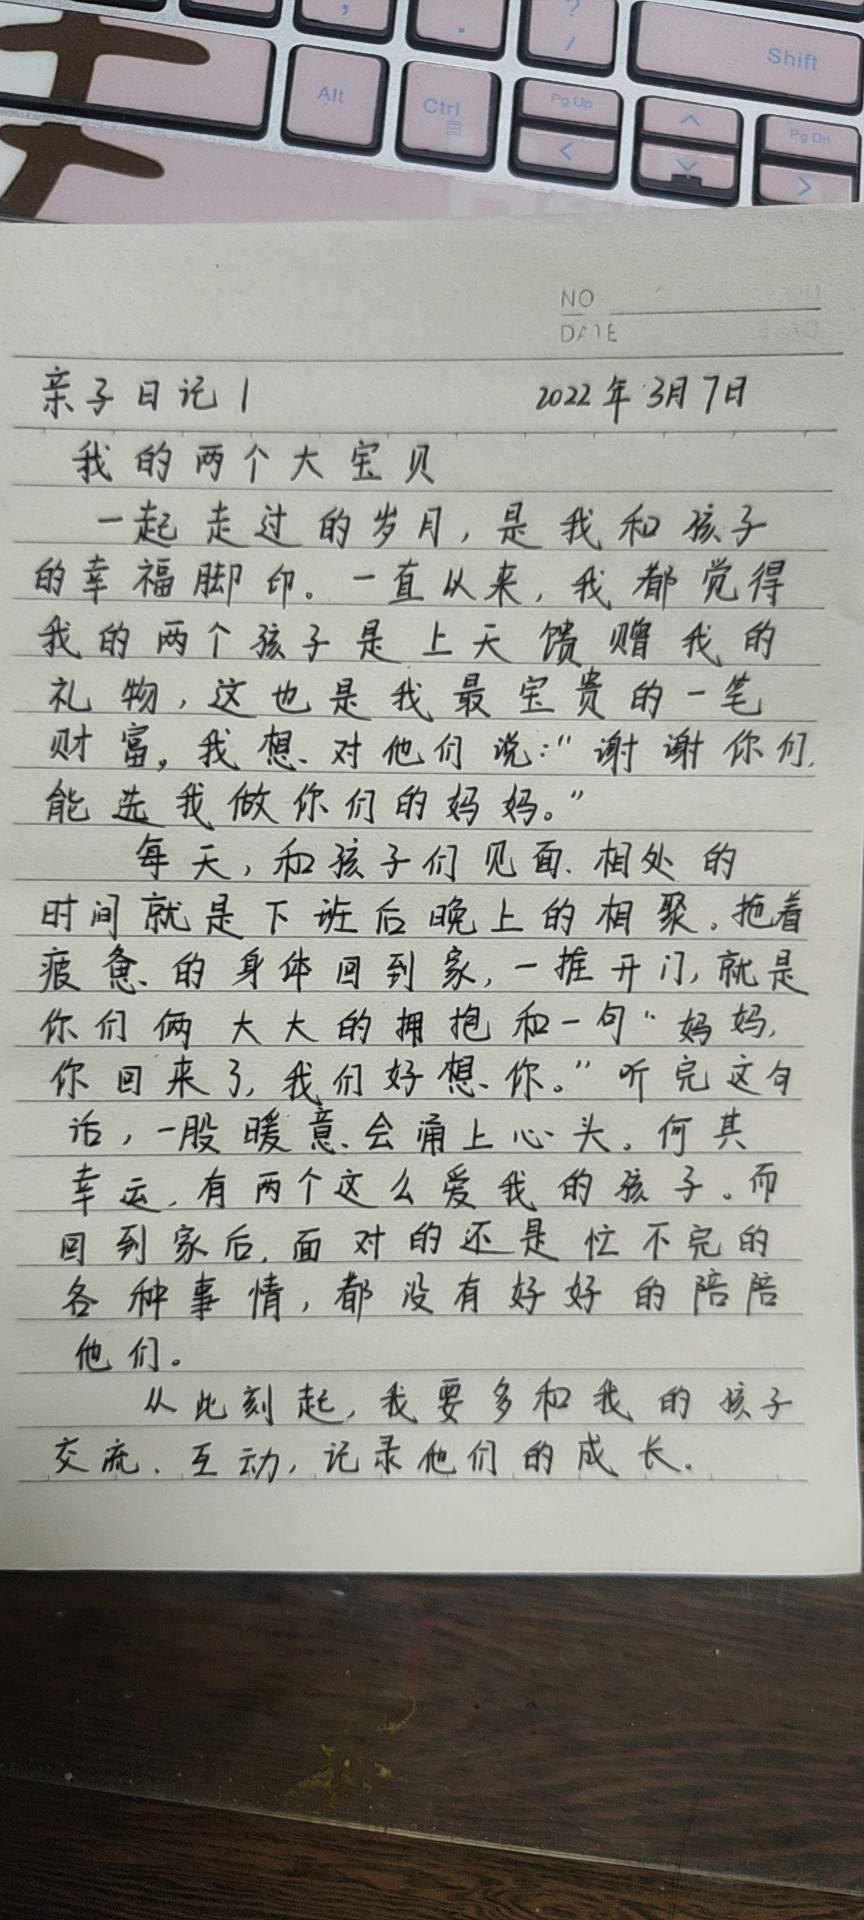 , . ? /
Shift
Alt
Ctrl
Pg Up
Pg Dn
NO
DATE
亲子日记1 2022年3月7日
我的两个大宝贝
一起走过的岁月，是我和孩子
的幸福脚印。一直以来，我都觉得
我的两个孩子是上天馈赠我的
礼物，这也是我最宝贵的一笔
财富。我想对他们说：“谢谢你们，
能选我做你们的妈妈。”
每天，和孩子们见面、相处的
时间就是下班后晚上的相聚。拖着
疲惫的身体回到家，一推开门，就是
你们俩大大的拥抱和一句“妈妈，
你回来了，我们好想你。”听完这句
话，一股暖意会涌上心头。何其
幸运，有两个这么爱我的孩子。而
回到家后，面对的还是忙不完的
各种事情，都没有好好的陪陪
他们。
从此刻起，我要多和我的孩子
交流、互动，记录他们的成长。